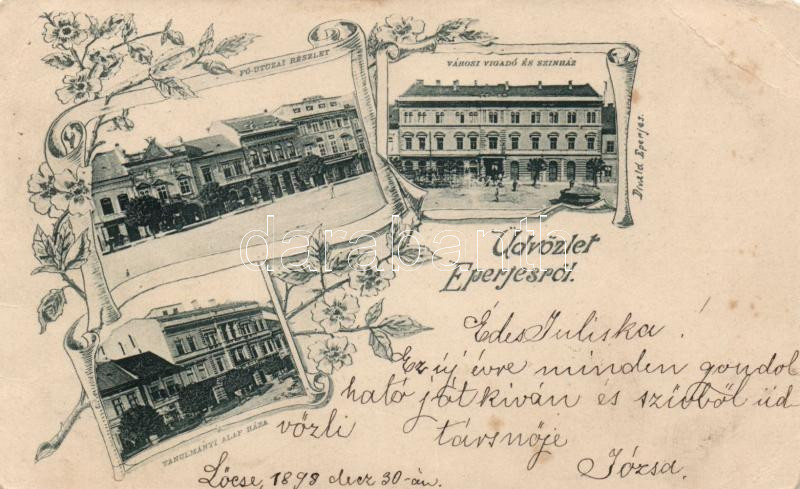 FŐ-UTCZAI RÉSZLET
VÁROSI VIGADÓ ÉS SZINHÁZ
Divald Eperjes.
darabanth.com
Üdvözlet
Eperjesről.
TANULMÁNYI ALAP HÁZA
Édes Juliska!
Ez új évre minden gondol
ható jót kiván és szivből üd
vözli társnője
Józsa.
Lőcse, 1898 decz 30-án.